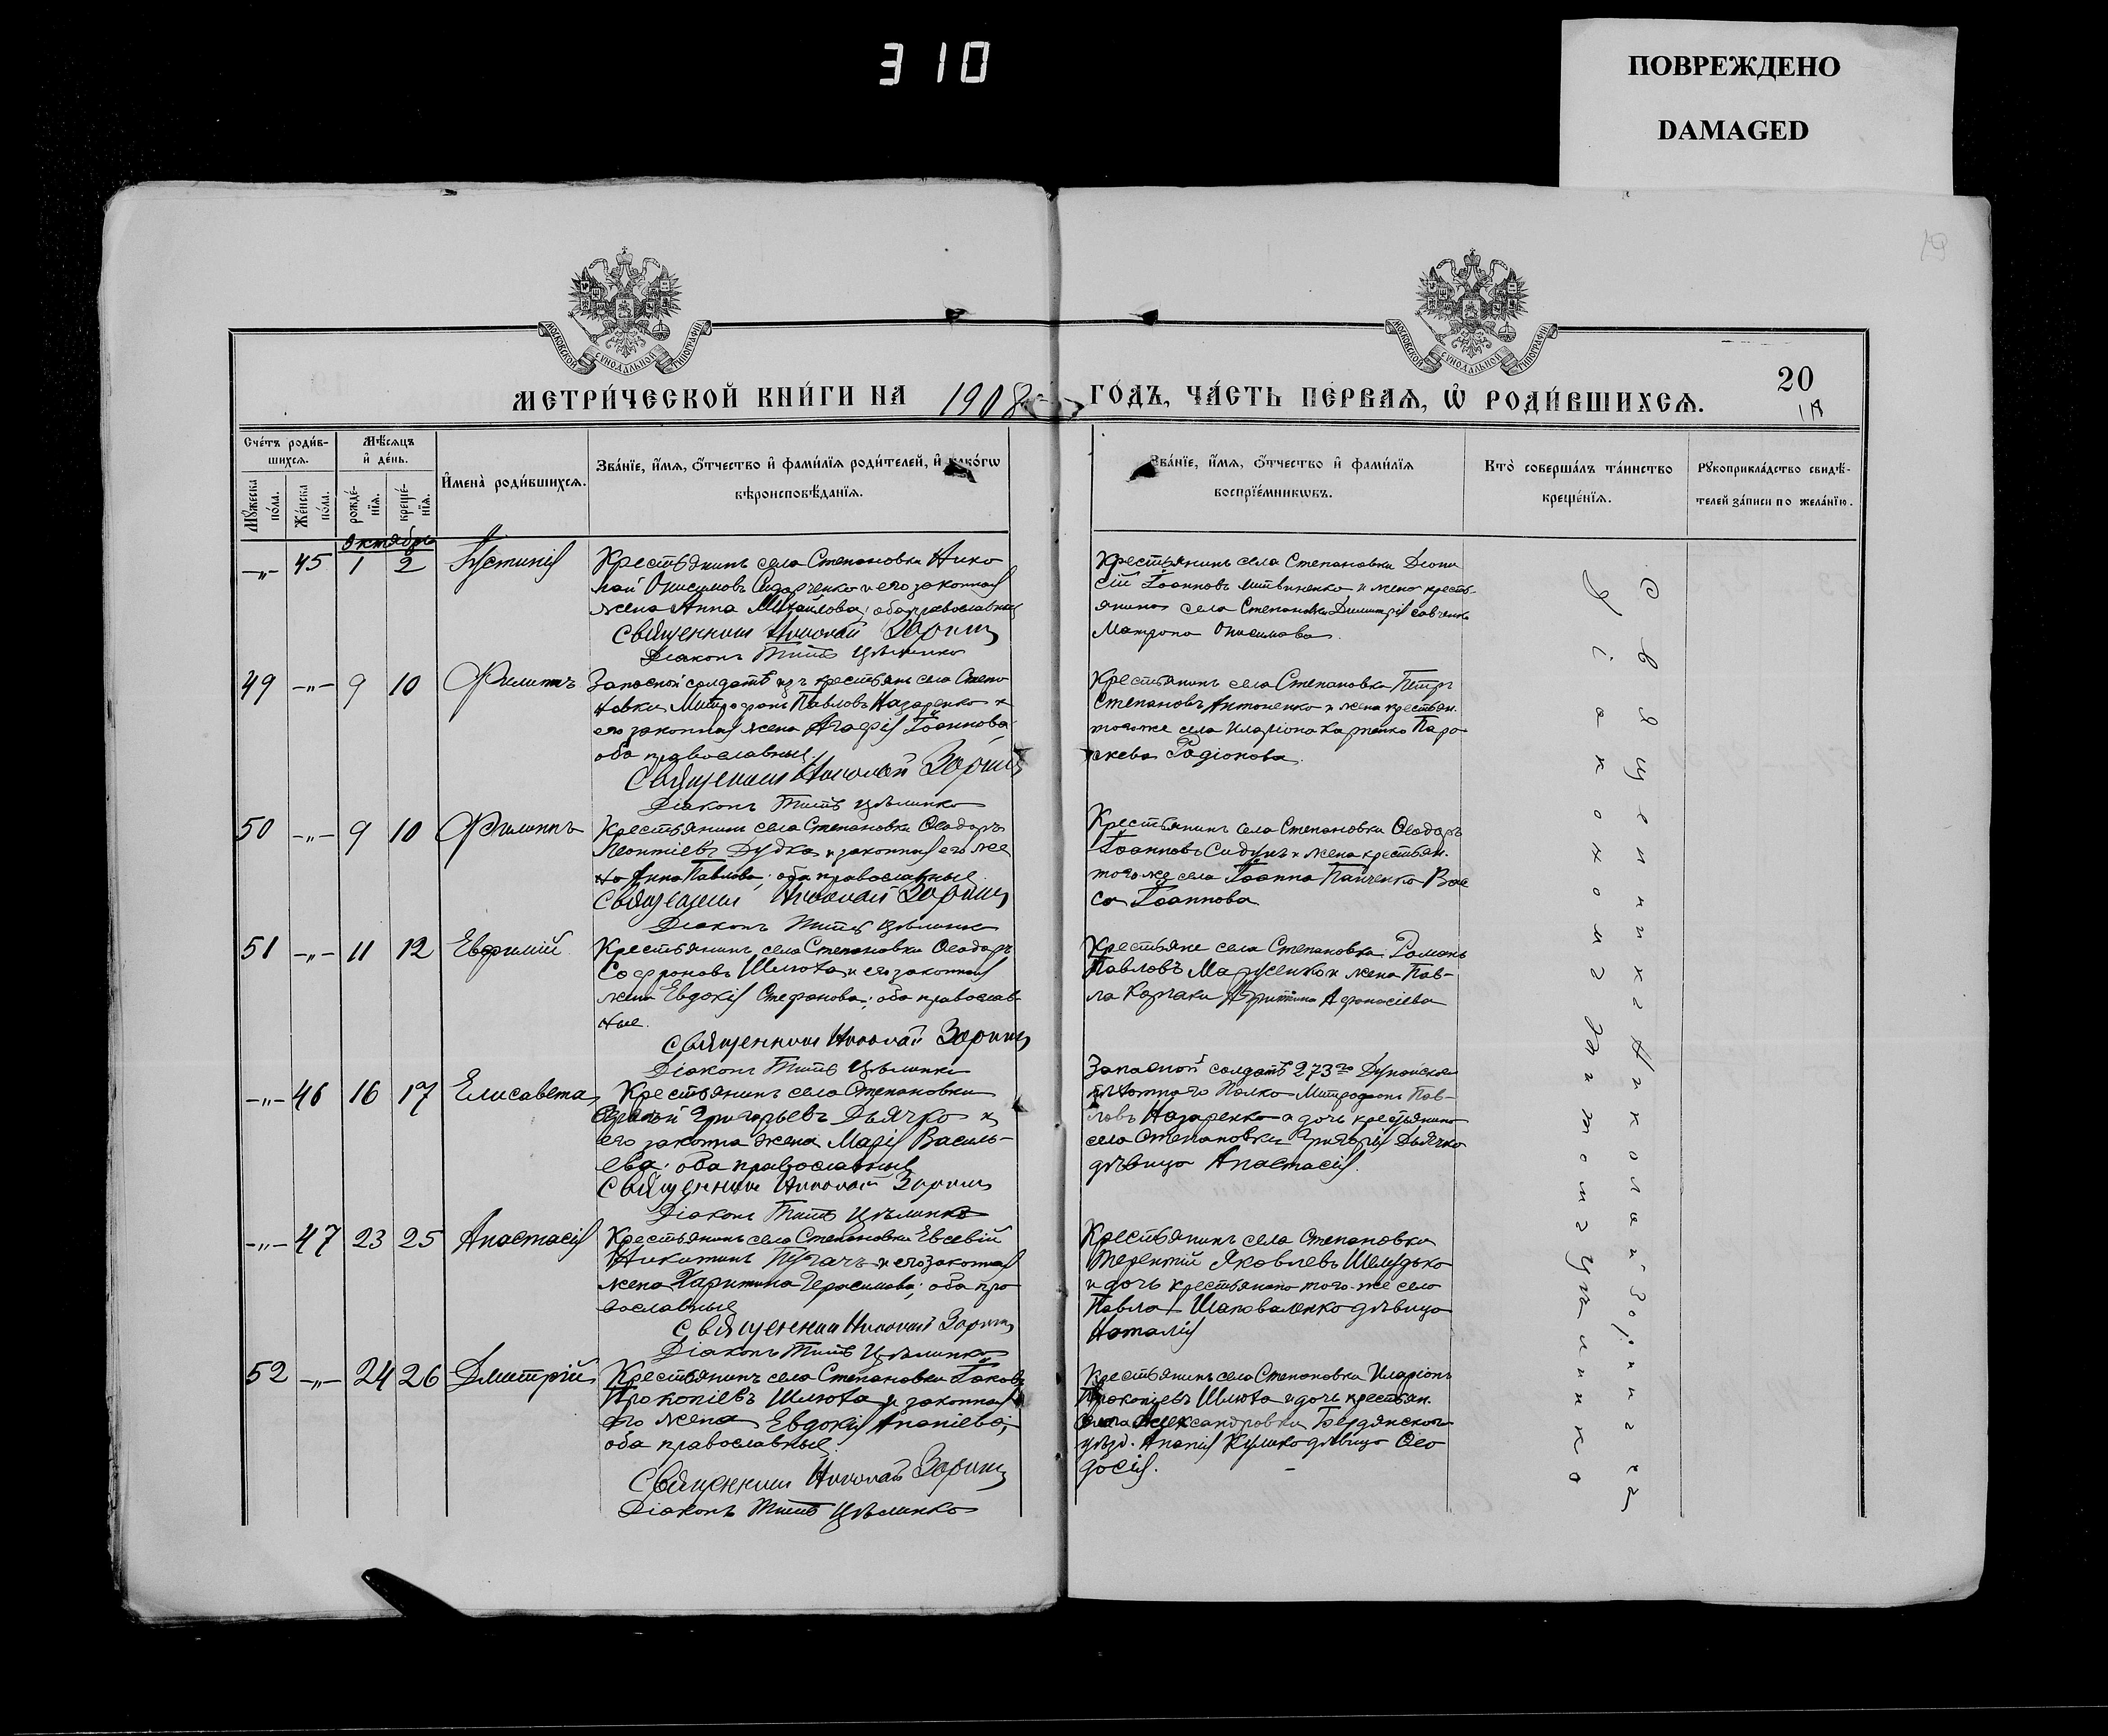 310
ПОВРЕЖДЕНО
DAMAGED
МОСКОВСКОЙ СѴНОДАЛЬНОЙ ТИПОГРАФІИ
МОСКОВСКОЙ СѴНОДАЛЬНОЙ ТИПОГРАФІИ
МЕТРИ́ЧЕСКОЙ КНИ́ГИ НА 1908 ГО́ДЪ, ЧА́СТЬ ПЕ́РВАѦ, Ѡ҆ РОДИ́ВШИХСѦ.
20
Сче́тъ роди́в-
шихсѧ.
Мѣ́сѧцъ
и҆ де́нь.
И҆мена̀ роди́вшихсѧ.
Зва́нїе, и҆́мѧ, ѻ҆́тчество и҆ фами́лїѧ роди́телей, и҆ како́гѡ
вѣроисповѣ́данїѧ.
Мꙋ́жеска
по́ла.
Же́нска
по́ла.
рожде́-
нїѧ.
креще́-
нїѧ.
Зва́нїе, и҆́мѧ, ѻ҆́тчество и҆ фами́лїѧ
воспрїе́мникѡвъ.
Кто̀ соверша́лъ та́инство
креще́нїѧ.
Рꙋкоприкла́дство свидѣ́-
телей за́писи по жела́нїю.
Октябрь
-„- 45 1 2 Іустинія
Крестьянинъ села Степановки Нико
лай Онисимовъ Сидорченко и его законная
жена Анна Михайлова; оба православные
Священникъ Николай Зоринъ
Діаконъ Титъ Цѣлинко
Крестьянинъ села Степановки Діони
сій Іоанновъ Литвиненко и жена кресть-
янина села Степановки Димитрія Савченко
Матрона Онисимова.
49 -„- 9 10 Филиппъ
Запасной солдатъ изъ крестьянъ села Степа
новки Митрофанъ Павловъ Назаренко и
его законная жена Агафія Іоаннова
оба православные
Священникъ Николай Зоринъ
Діаконъ Титъ Цѣлинко
Крестьянинъ села Степановки Петръ
Степановъ Антоненко и жена крестьян.
того же села Иларіона Карпенко Пара
скева Родіонова.
50 -„- 9 10 Филиппъ
Крестьянинъ села Степановки Ѳеодоръ
Леонтіевъ Дудка и законная его же
на Анна Павлова; оба православные
Священникъ Николай Зоринъ
Діаконъ Титъ Цѣлинко
Крестьянинъ села Степановки Ѳеодоръ
Іоанновъ Сидунъ и жена крестьян.
того же села Іоанна Панченко Вас
са Іоаннова
51 -„- 11 12 Евфимій
Крестьянинъ села Степановки Ѳеодоръ
Софроновъ Шлюта и его законная
жена Евдокія Стефанова; оба православ-
ные.
Священникъ Николай Зоринъ
Діаконъ Титъ Цѣлинко
Крестьяне села Степановки Романъ
Павловъ Марусенко и жена Пав-
ла Аѳанасіева
-„- 46 16 17 Елисавета
Крестьянинъ села Степановки
Григорьевъ Дьячко и
его законна жена Марія Василь-
ева; оба православные
Священникъ Николай Зоринъ
Діаконъ Титъ Цѣлинко
Запасной солдатъ 273го Дунайскаго
пѣхотнаго Полка Митрофанъ Пав-
ловъ Назаренко и дочь крестьянина
села Степановки Григорія Дьячко
дѣвица Анастасія.
-„- 47 23 25 Анастасія
Крестьянинъ села Степановки Евсевій
Никитинъ Пугачъ и его законная
жена Харитина Герасимова; оба пра
вославные
Священникъ Николай Зоринъ
Діаконъ Титъ Цѣлинко
Крестьянинъ села Степановки
Терентій Яковлевъ Шелудько
и дочь крестьянина того-же села
Павла Шаповаленко дѣвица
Наталія
52 -„- 24 26 Дмитрій
Крестьянинъ села Степановки Іаковъ
Прокопіевъ Шлюта и законная
его жена Евдокія Ананіева;
оба православные
Священникъ Николай Зоринъ
Діаконъ Титъ Цѣлинко
Крестьянинъ села Степановки Иларіонъ
Прокопіевъ Шлюта и дочь крестьян.
села Александровки Бердянскаго
уѣзд. Ананія Кулико дѣвица Ѳео
досія.
Священникъ Николай Зоринъ съ
Діакономъ Титомъ Цѣлинко